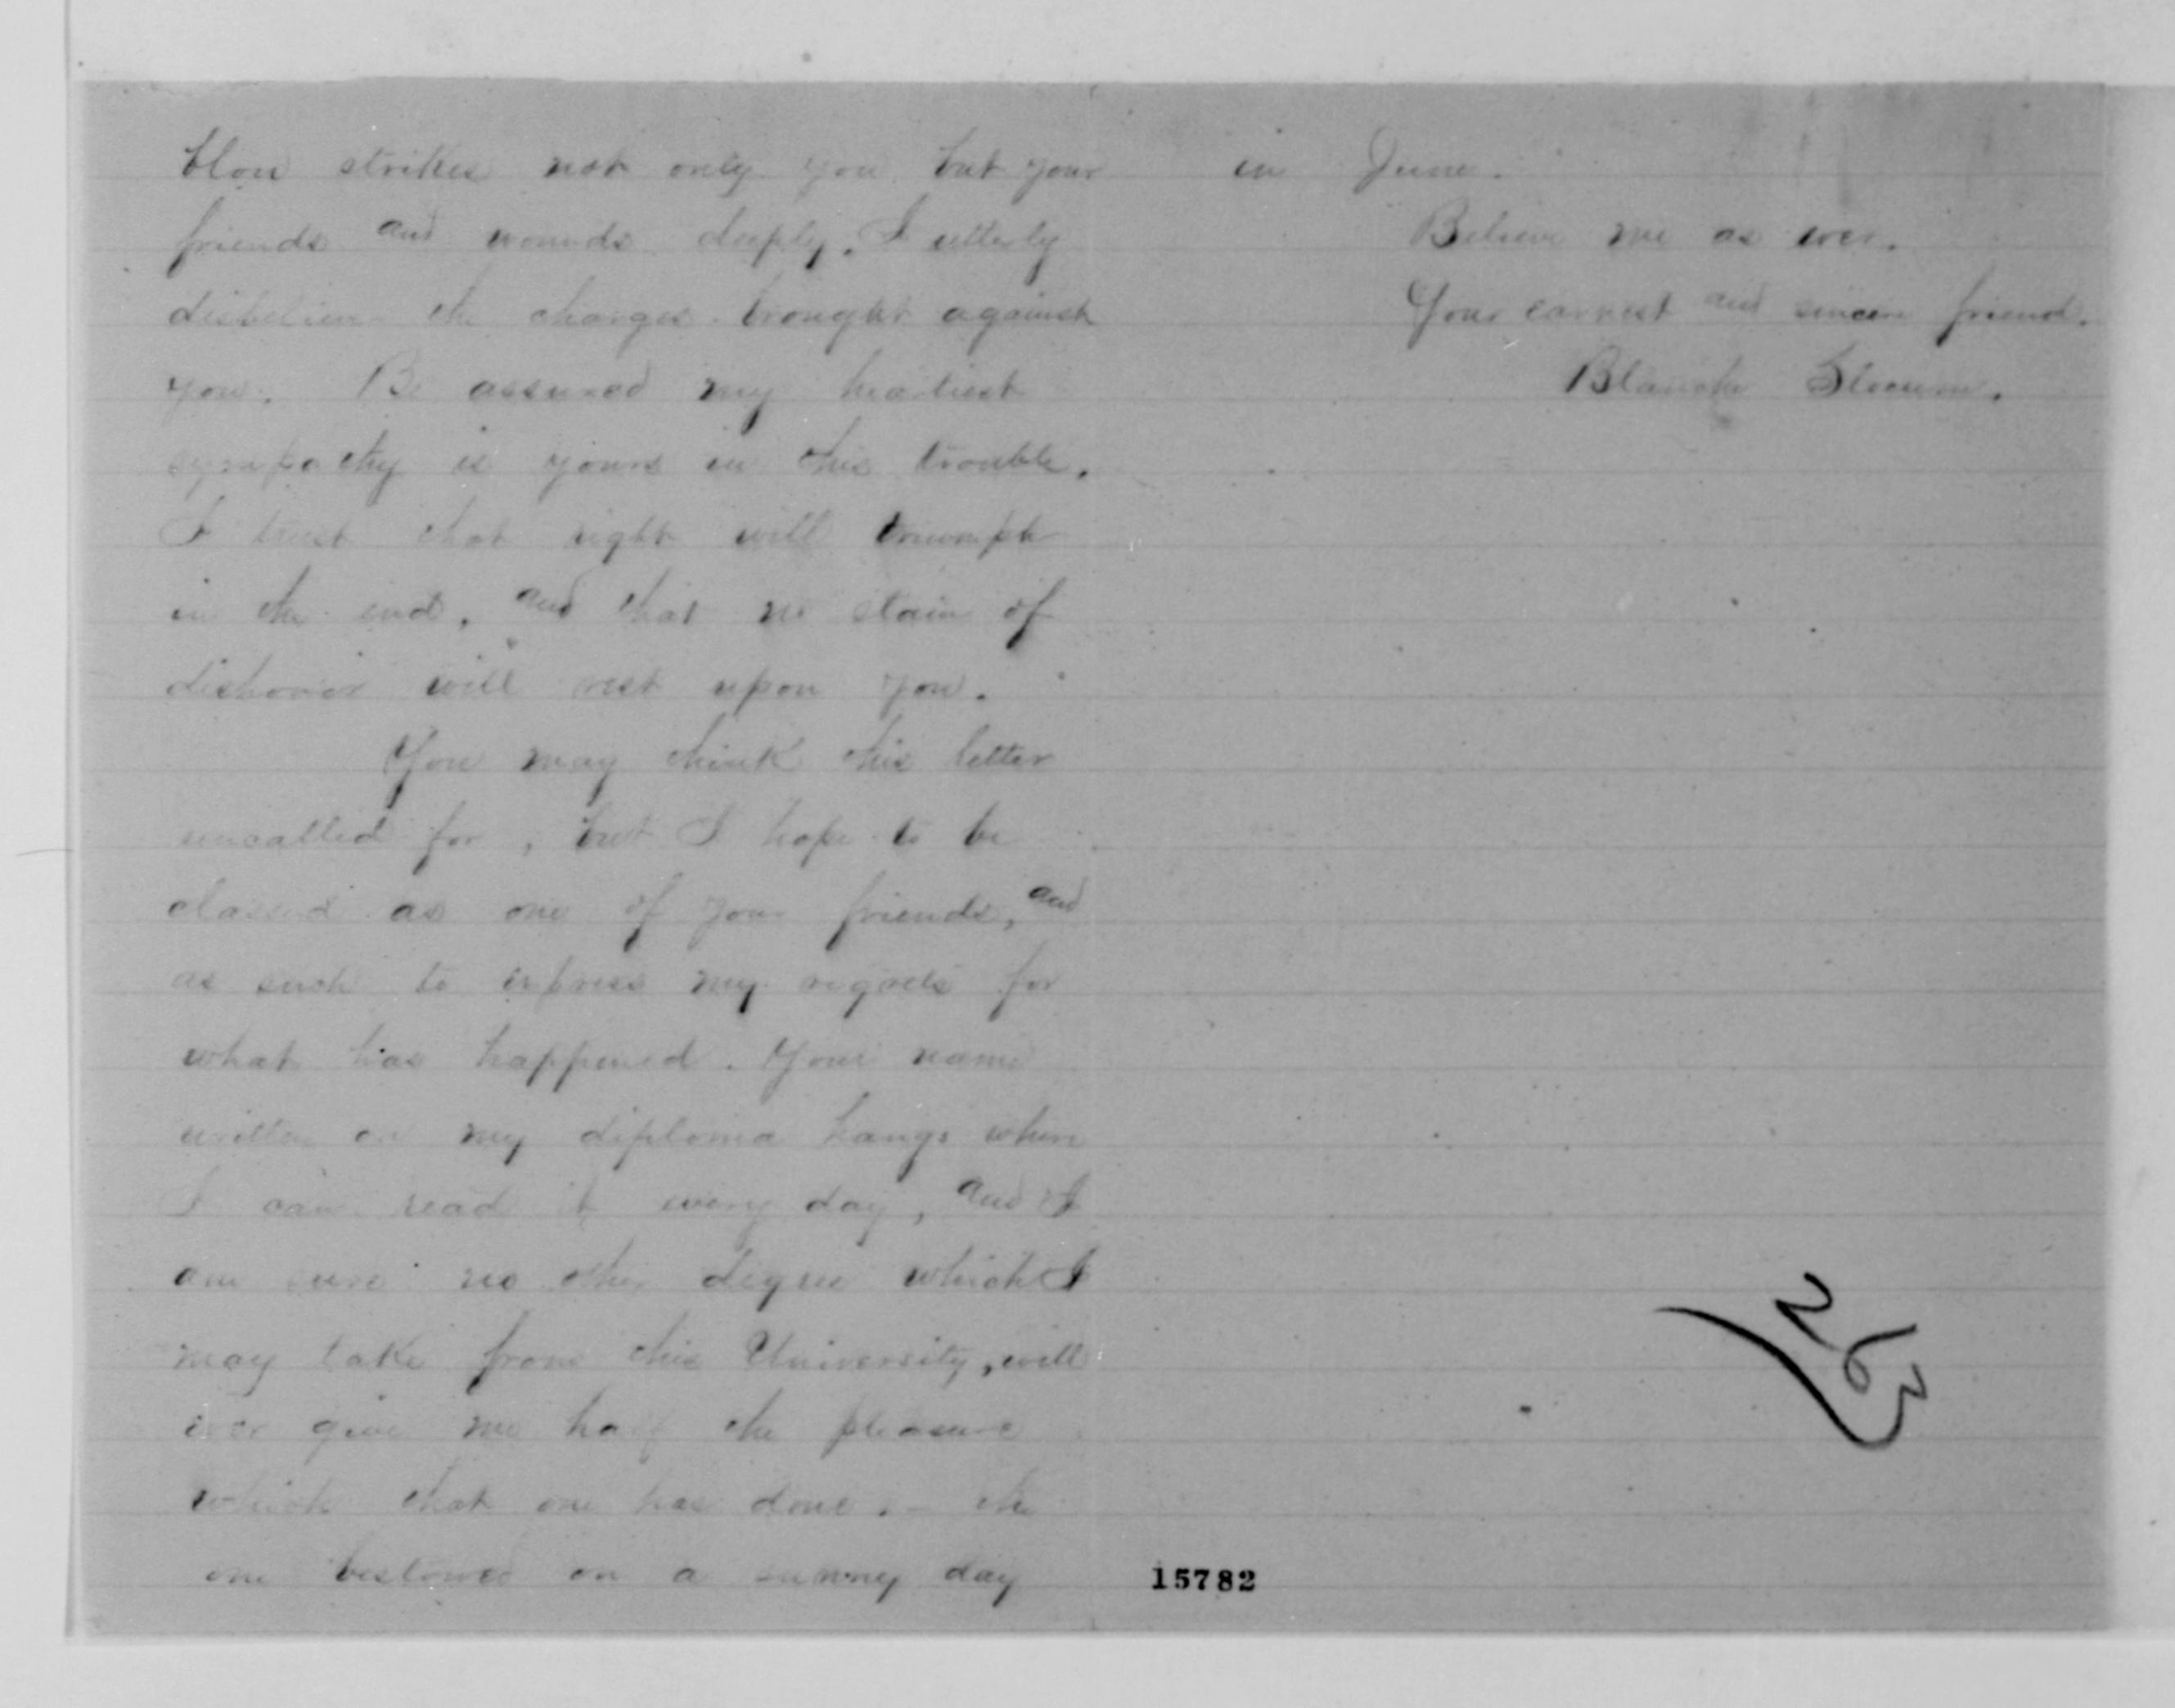 blow strikes not only you but your
friends and wounds deeply. I utterly
disbelieve the charges brought against
you. Be assured my heartiest
sympathy is yours in this trouble.
I trust that right will triumph
in the end, and that no stain of
dishonor will rest upon you.
You may think this letter
uncalled for, but I hope to be
classed as one of your friends, and
as such to express my regrets for
what has happened. Your name
written on my diploma hangs where
I can read it every day, and I
am sure no other degree which I
may take from this University, will
ever give me half the pleasure
which that one has done. - the
one bestowed on a sunny day
in June.
Believe me as ever.
Your earnest and sincere friend.
Blanche Slocum.
263
15782